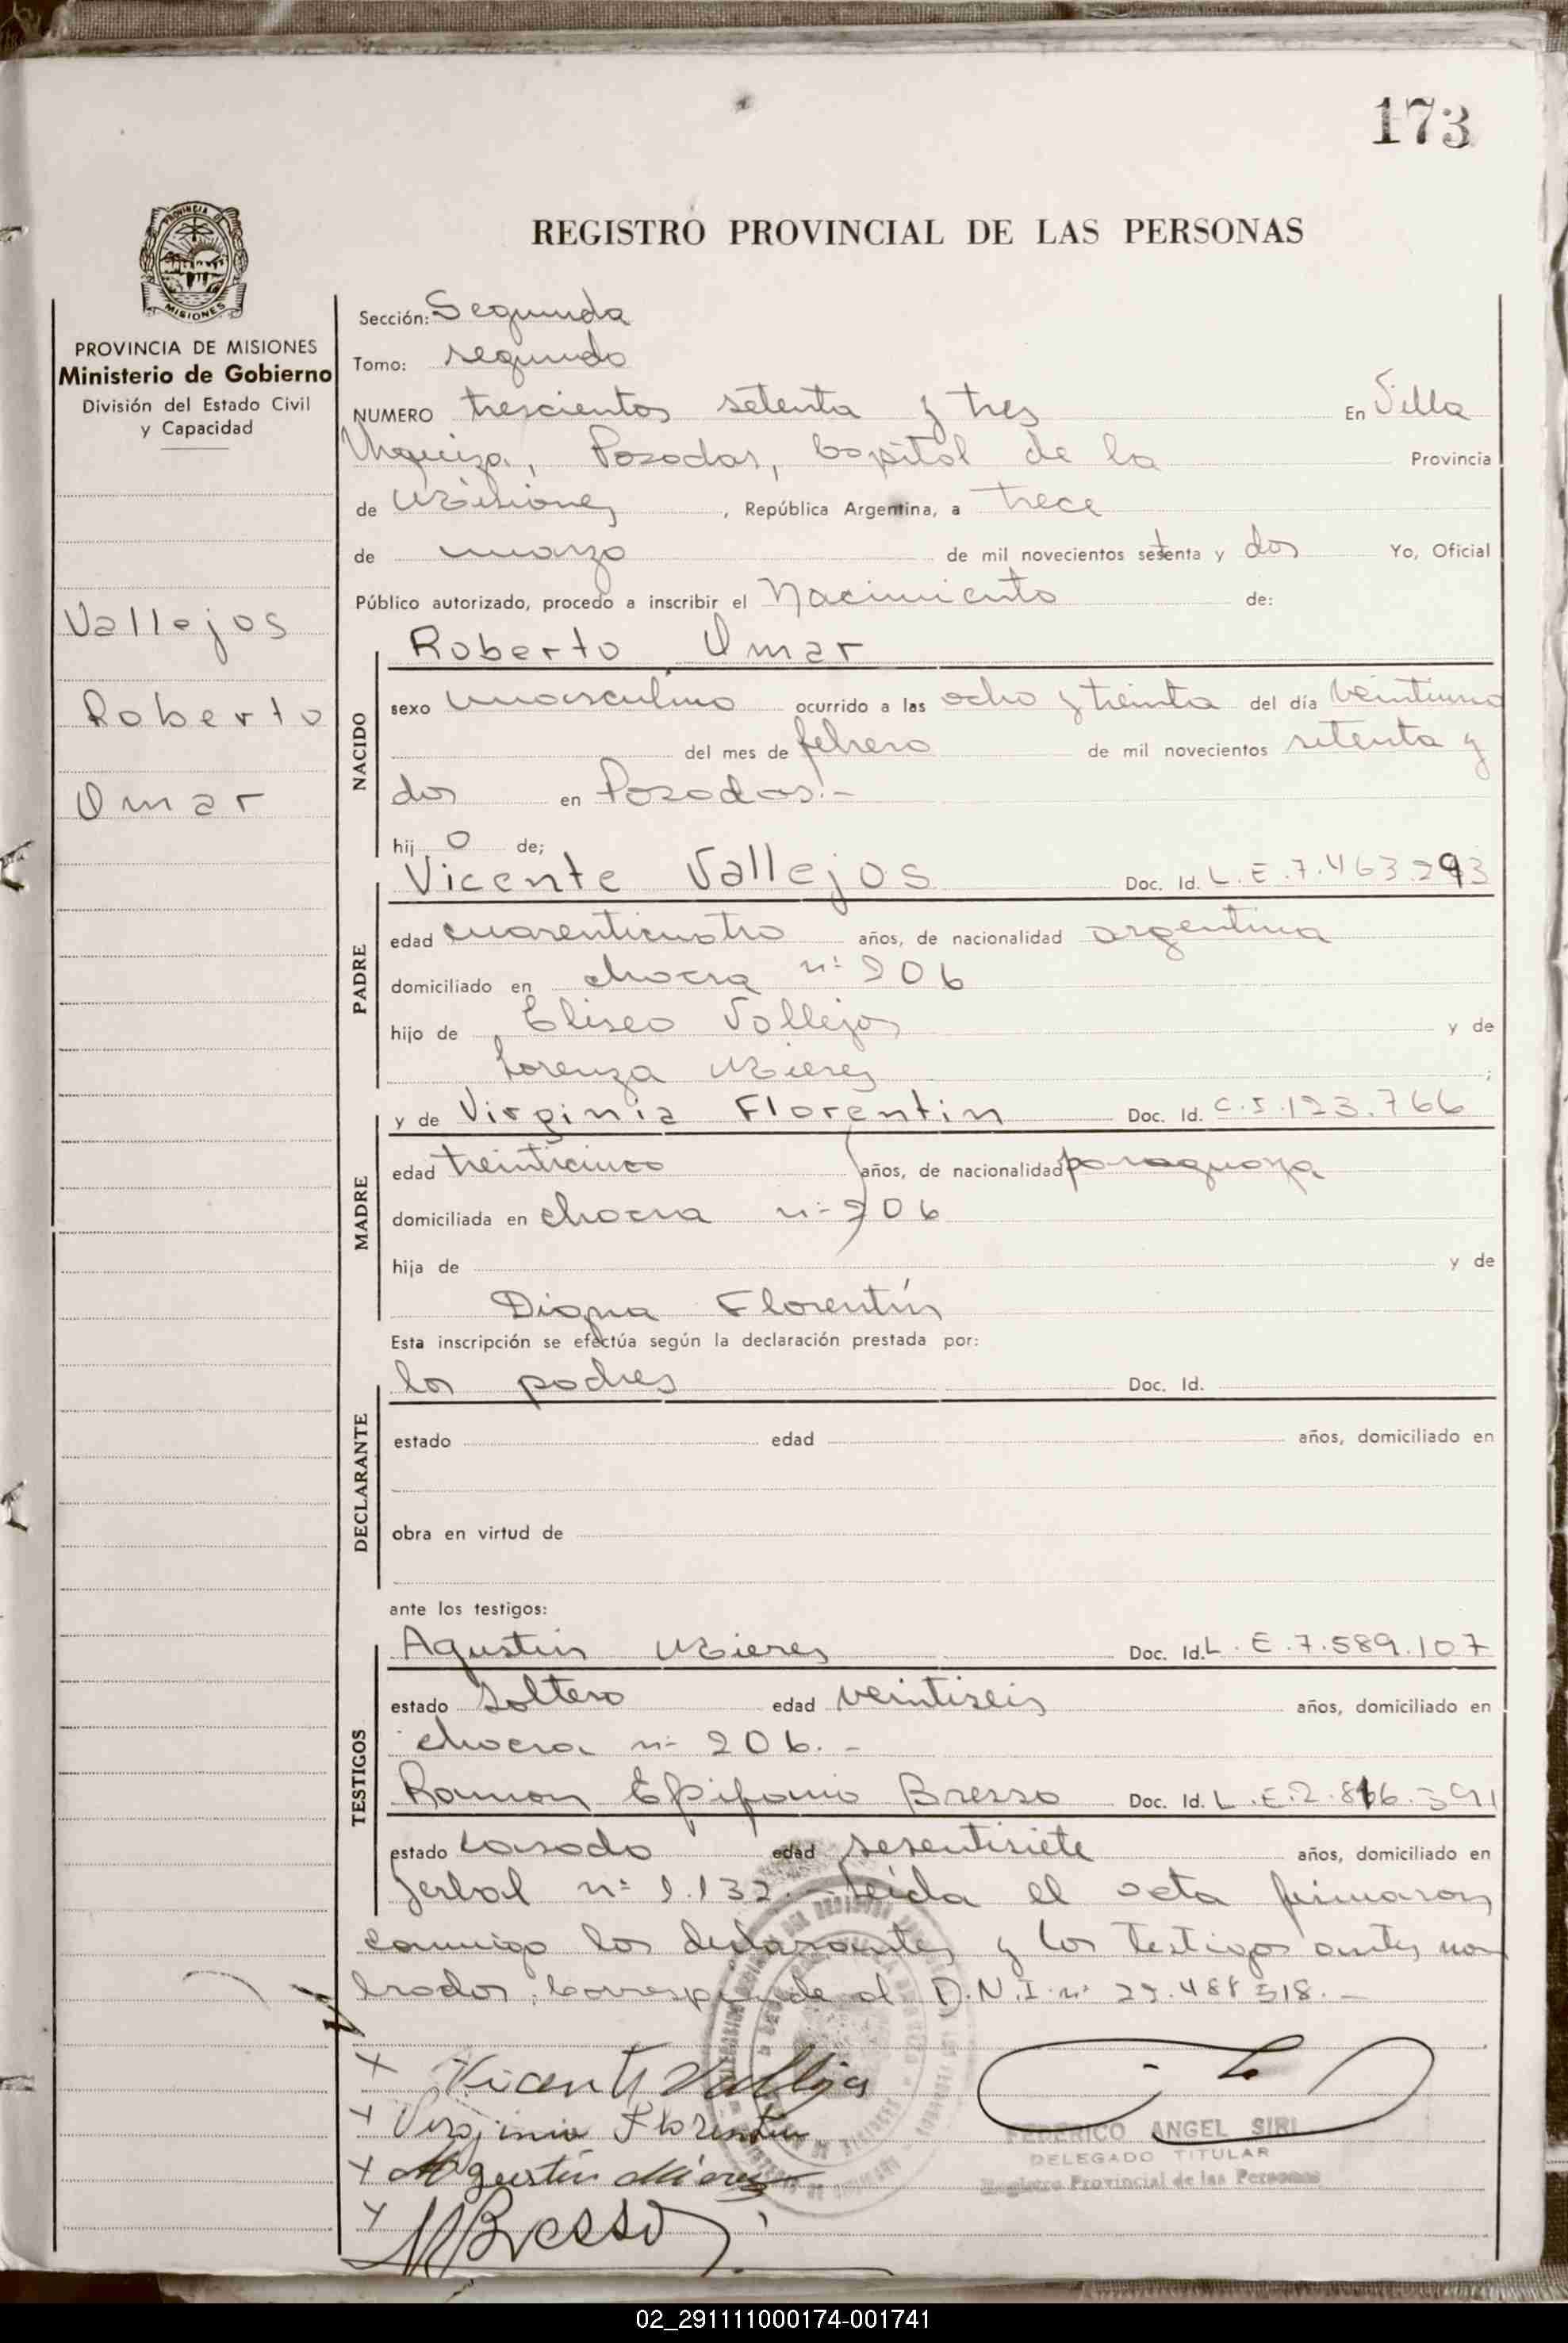 173
REGISTRO PROVINCIAL DE LAS PERSONAS
PROVINCIA DE MISIONES
Ministerio de Gobierno
División del Estado Civil
y Capacidad
Vallejos
Roberto
Omar
Sección: Segunda
Tomo: segundo
NUMERO trescientos setenta y tres En Villa
Urquiza, Posadas, Capital de la Provincia
de Misiones, República Argentina, a trece
de marzo de mil novecientos setenta y dos Yo, Oficial
Público autorizado, procedo a inscribir el Nacimiento de:
Roberto Omar
NACIDO
sexo masculino ocurrido a las ocho y treinta del día veintiuno
del mes de febrero de mil novecientos setenta y
dos en Posadas.-
hij o de;
Vicente Vallejos Doc. Id. L.E.7.463.293
PADRE
edad cuarenticuatro años, de nacionalidad argentina
domiciliado en chacra nº 206
hijo de Eliseo Vallejos y de
Lorenza Mieres ;
y de Virginia Florentin Doc. Id. C.I.123.766
MADRE
edad treinticinco años, de nacionalidad paraguaya
domiciliada en chacra nº 206
hija de y de
Digna Florentín
Esta inscripción se efectúa según la declaración prestada por:
los padres Doc. Id.
DECLARANTE
estado edad años, domiciliado en
obra en virtud de
ante los testigos:
Agustin Mieres Doc. Id. L.E.7.589.107
TESTIGOS
estado soltero edad veintiseis años, domiciliado en
chacra nº 206.-
Ramon Epifanio Bresso Doc. Id. L.E.2.816.391
estado casado edad sesentisiete años, domiciliado en
Jerbal nº 1.132.- Leida el acta firmaron
conmigo los declarantes y los testigos antes nom
brados. Corresponde al D.N.I. nº 518.-
x Vicente Vallejos
x Virginia Florentin
x Agustin Mieres
x Bresso
FEDERICO ANGEL SIRI
DELEGADO TITULAR
Registro Provincial de las Personas
02_291111000174-001741